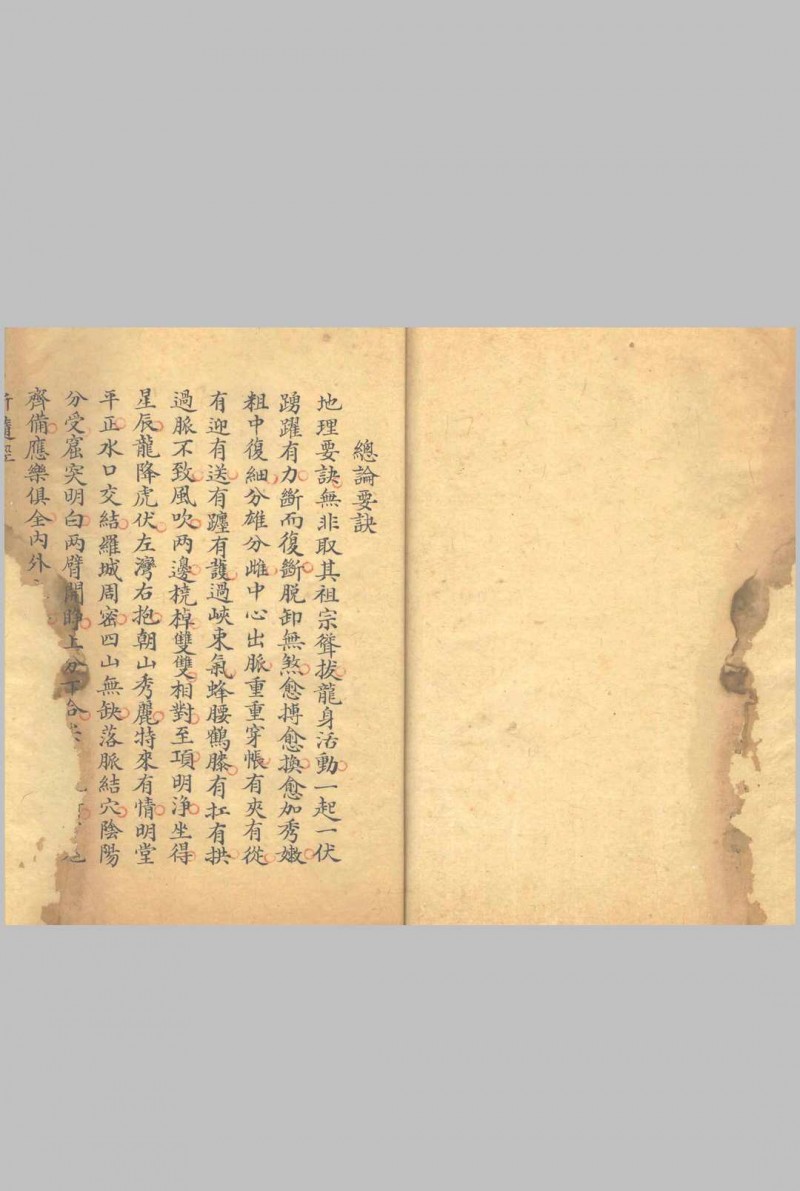 總論要訣
地理要訣無非取其祖宗聳拔龍身活動一起一伏
踴躍有力斷而復斷脱卸無煞愈摶愈換愈加秀嫩
粗中復細分雄分雌中心出脈重重穿帳有夾有從
有迎有送有躔有護過峽束氣蜂腰鶴膝有扛有拱
過脈不致風吹两邊橈棹雙雙相對至項明淨坐得
星辰龍降虎伏左灣右抱朝山秀麗特來有情明堂
平正水口交結羅城周密四山無缺落脈結穴陰陽
分受窟突明白两臂開睁上分下合
齊備應樂俱全内外